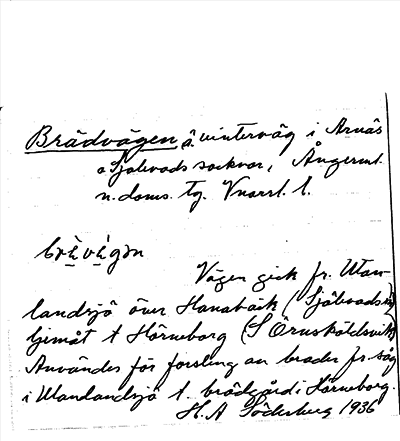 Brädvägen å vinterväg i Arnäs
o Själevads socknar, Ångerml.
n. doms. tg. Vnorrl. l.
Vägen gick fr. Utan-
landsjö över Hanabäck (Själevads
t Hörneborg (S Örnsköldsvik)
Användes för forsling av bräder fr. såg
i Utanlandsjö t. brädgård i Hörneborg.
H. A Söderberg 1936